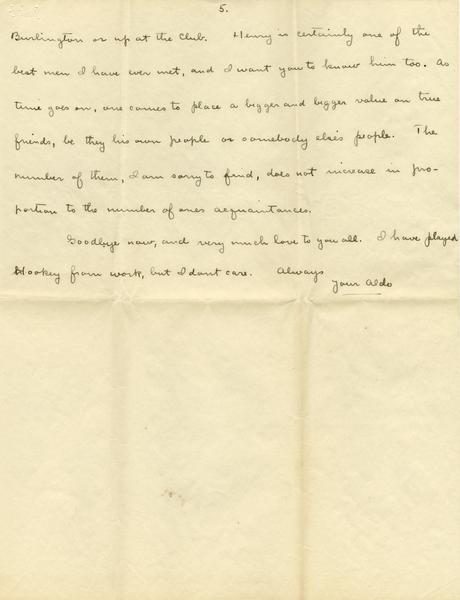 5.
Burlington or up at the Club. Henry is certainly one of the
best men I have ever met, and I want you to know him too. As
time goes on, one comes to place a bigger and bigger value on true
friends, be they his own people or somebody else's people. The
number of them, I am sorry to find, does not increase in pro-
portion to the number of ones acquaintances.
Goodbye now, and very much love to you all. I have played
Hookey from work, but I dont care. Always
your Aldo